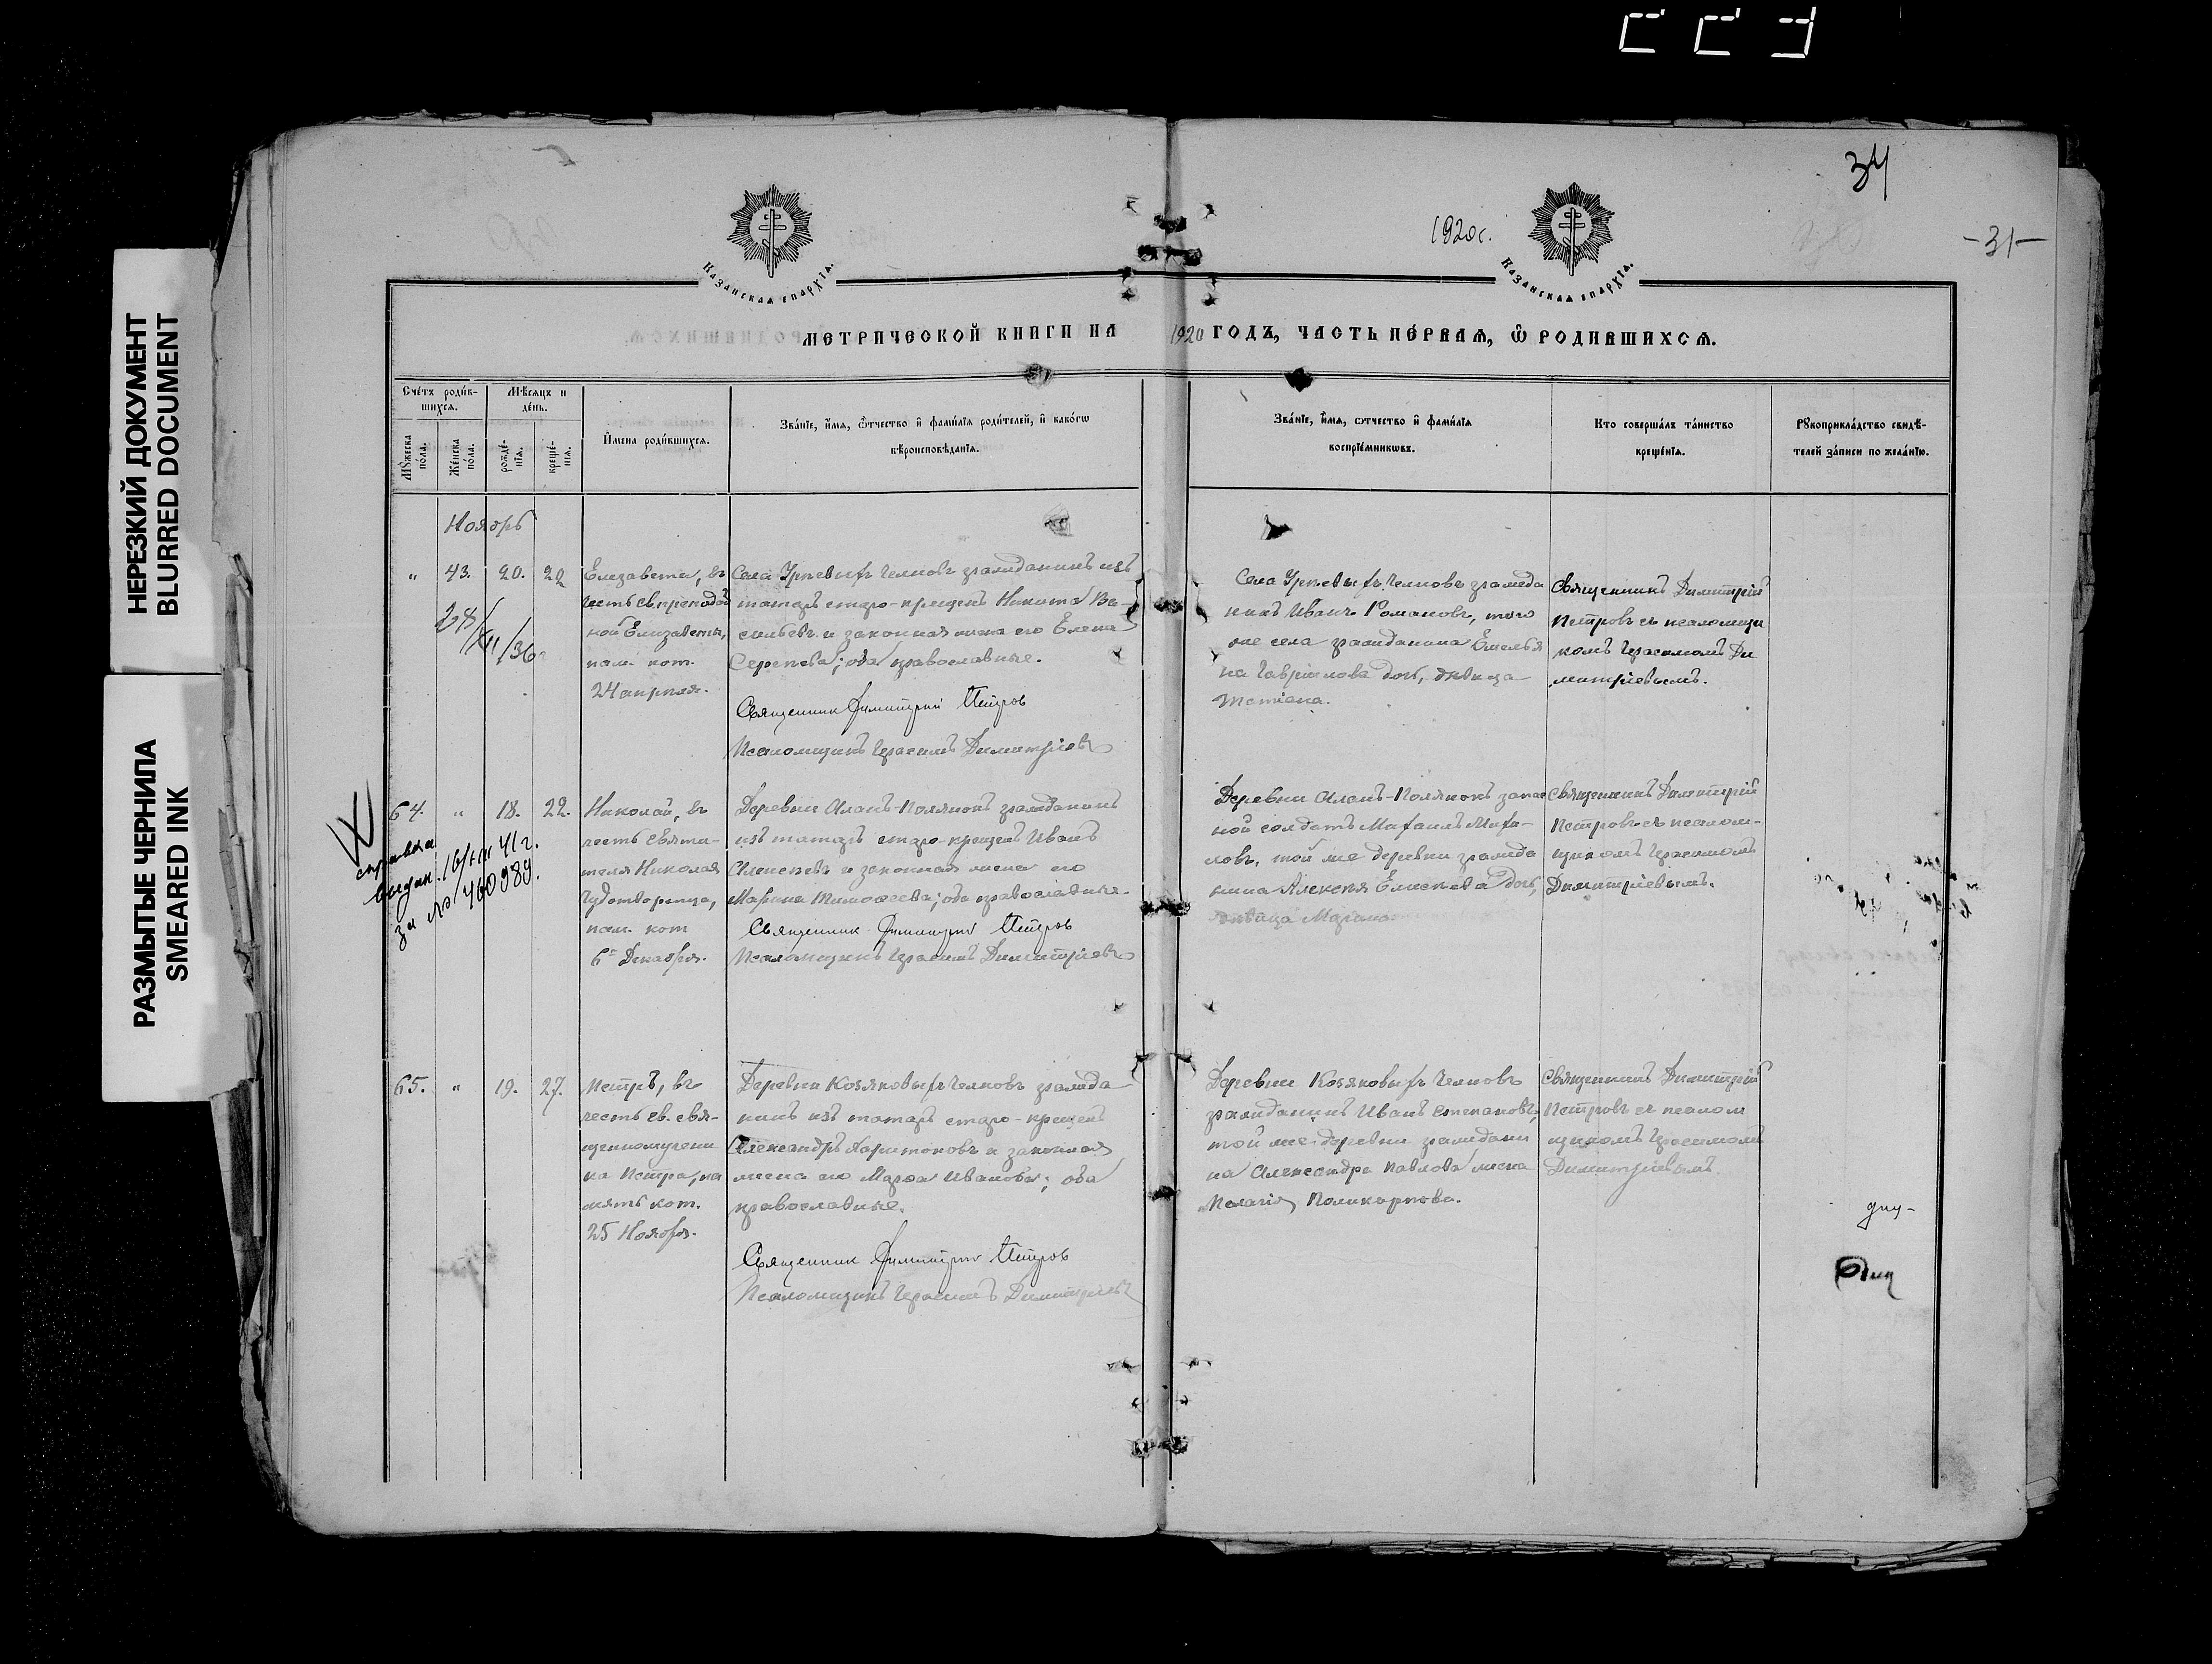 34
1920 г.
-31-
Казанская епархія.
Казанская епархія.
МЕТРИЧЕСКОЙ КНИГИ НА 1920 ГОДЪ, ЧАСТЬ ПЕРВАЯ, Ѿ РОДИВШИХСЯ.
Счетъ родив-
шихся.
Мѣсяцъ и
день.
Мужеска
пола.
Женска
пола.
рожде-
нія.
креще-
нія.
Имена родившихся.
Званіе, имя, ѿчество и фамилія родителей, и какогѡ
вѣроисповѣданія.
Званіе, имя, ѿчество и фамилія
воспріемникѡвъ.
Кто совершалъ таинство
крещенія.
Рукоприкладство свидѣ-
телей записи по желанію.
Ноябрь
" 43. 20. 22
Елизавета, въ
честь св. преподоб
ной Елизаветы,
пам. кот.
24 апрѣля.
Села Урѣевыхъ Челновъ гражданинъ изъ
татаръ старо-крещенъ Никита Ва-
сильевъ и законная жена его Елена
Сергѣева; оба православные.
Священник Димитрий Петров
Псаломщикъ Герасимъ Димитріевъ
Села Урѣевыхъ Челновъ гражда
нинъ Иванъ Романовъ, того
же села гражданина Емелья
на Гавріилова дочь, дѣвица
Татіана.
Священникъ Димитрій
Петровъ съ псаломщи
комъ Герасимомъ Ди
митріевымъ.
64. " 18. 22.
справка
выдан. 16/VIII 41 г.
за № 460989.
Николай, въ
честь Святи-
теля Николая
Чудотворца,
пам. кот
6го Декабря.
Деревни Аланъ-Полянокъ гражданинъ
изъ татаръ старо-крещенъ Иванъ
Алексѣевъ и законная жена его
Марина Тимофеева; оба православные.
Священник Димитрий Петров
Псаломщикъ Герасимъ Димитріевъ
Деревни Аланъ-Полянокъ запас
ной солдатъ Михаилъ Миха-
ловъ, той же деревни гражда
нина Алексѣя Елисѣева дочь,
дѣвица Марина.
Священникъ Димитрій
Петровъ съ псалом-
щикомъ Герасимомъ
Димитріевымъ.
65. " 19. 27.
Петръ, въ
честь св. свя-
щенномучени
ка Петра, па
мять кот.
25 Ноября.
Деревни Козяковыхъ Челновъ гражда
нинъ изъ татаръ старо-крещенъ
Александръ Харитоновъ и законная
жена его Марфа Иванова; оба
православные.
Священник Димитрий Петров
Псаломщикъ Герасимъ Димитріевъ
Деревни Козяковыхъ Челновъ
гражданинъ Иванъ Степановъ,
той же деревни граждани
на Александра Павлова жена
Пелагія Поликарпова.
Священникъ Димитрій
Петровъ съ псалом
щикомъ Герасимомъ
Димитріевымъ.
НЕРЕЗКИЙ ДОКУМЕНТ
BLURRED DOCUMENT
РАЗМЫТЫЕ ЧЕРНИЛА
SMEARED INK